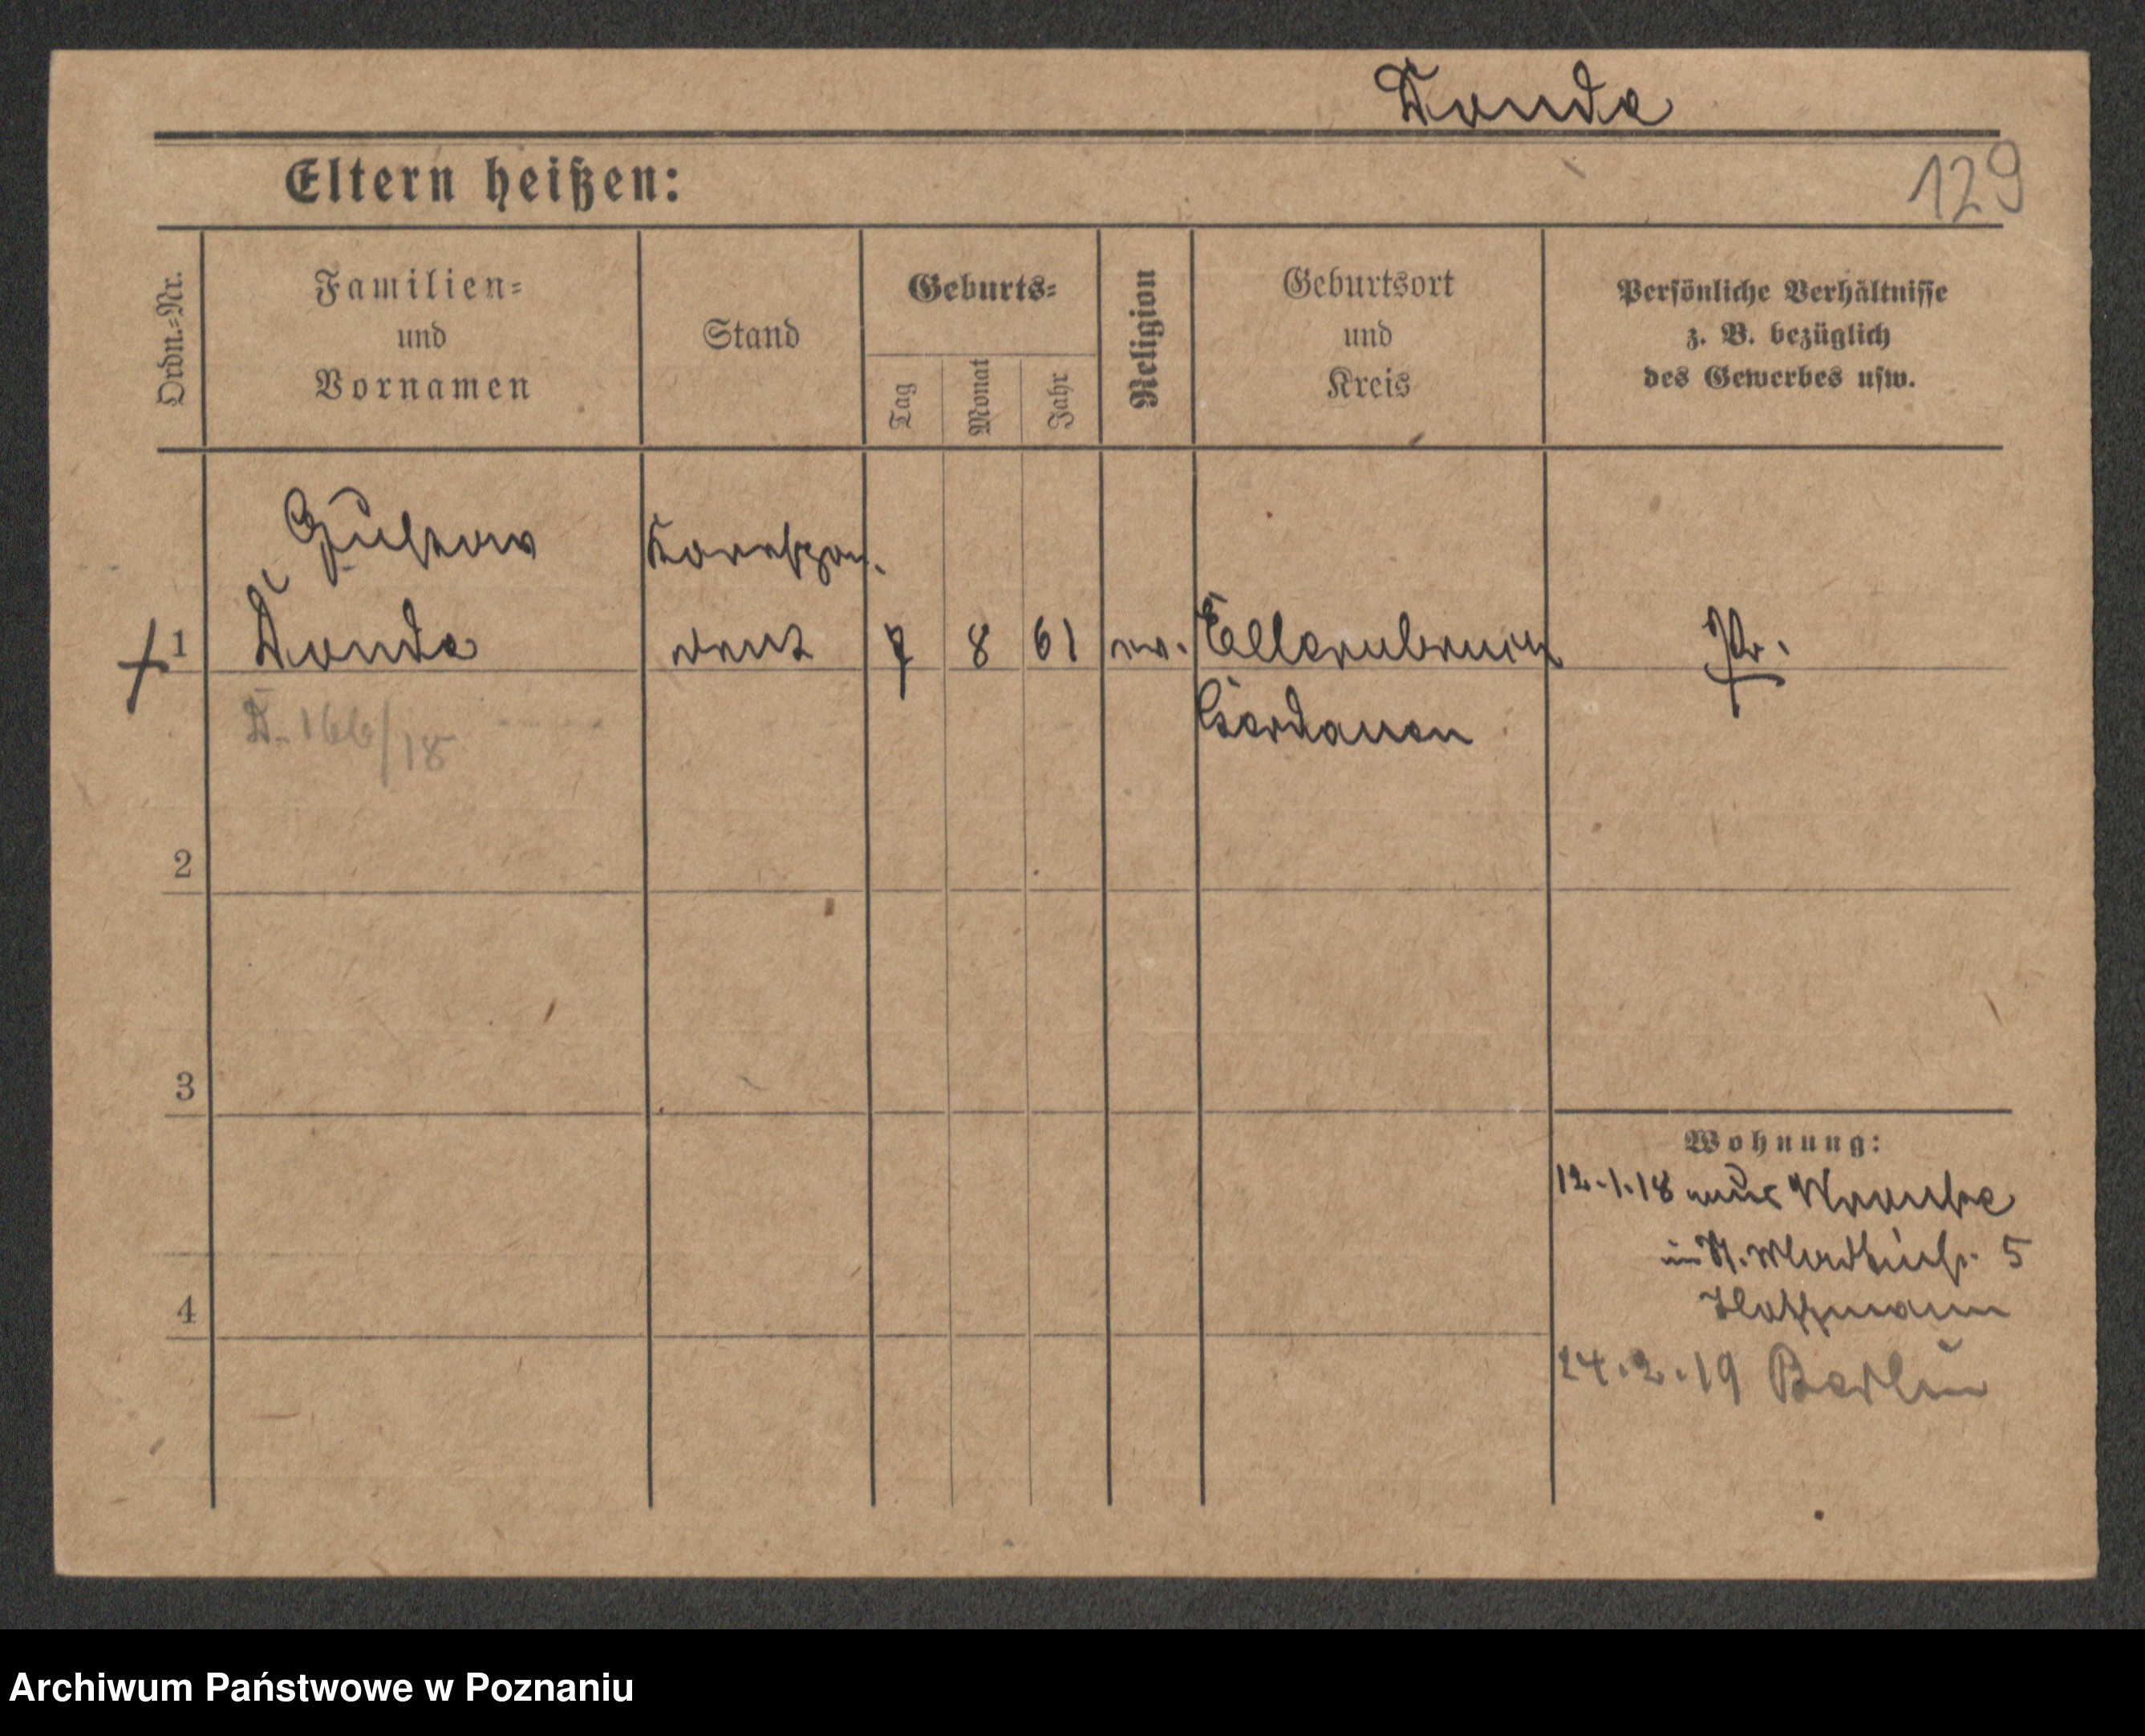 Donde
Eltern heißen:
129
Ordn.-Nr.
Familien-
und
Vornamen
Stand
Geburts-
Tag
Monat
Jahr
Religion
Geburtsort
und
Kreis
Persönliche Verhältnisse
z. B. bezüglich
des Gewerbes usw.
Gustav Korrespon-
1 Donde dent 7 8 61 ev. Ellernbruch Pr.
Gerdauen
D. 166/18
2
3
Wohnung:
12.1.18 aus
5
4
Hoffmann
24.2.19 Berlin
Archiwum Państwowe w Poznaniu